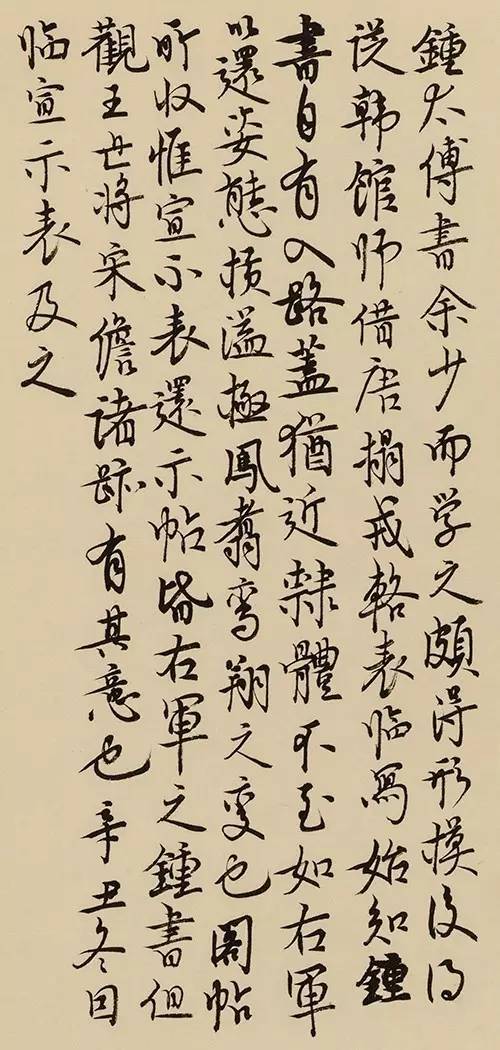 鍾太傅書余少而学之頗得形模後得
從韩館师借唐搨戎輅表临寫始知鍾
書自有入路蓋猶近隸體不至如右軍
以還姿態横溢極鳳翥鸾翔之变也閣帖
所收惟宣示表還示帖皆右軍之鍾書但
觀王世将宋儋諸跡有其意也辛丑冬因
临宣示表及之